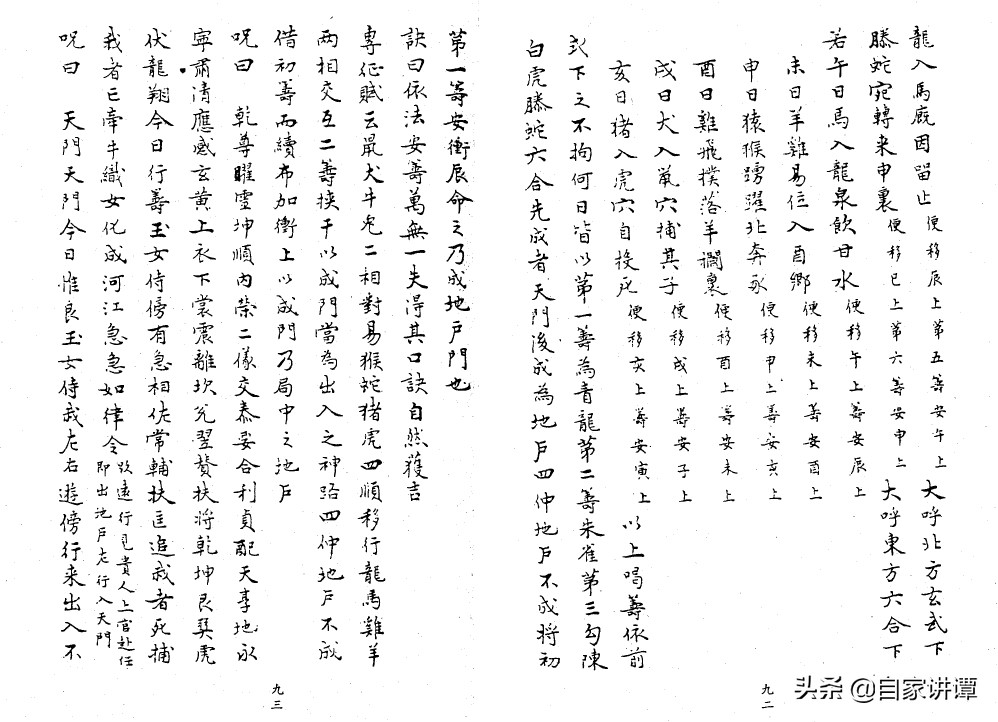 龍入馬廐因留止便移辰上第五筭安午上大呼北方玄武下
螣蛇宛轉来申裏便移巳上第六筭安申上大呼東方六合下
若午日馬入龍泉飲甘水便移午上筭安辰上
未日羊雞易位入酉鄉便移未上筭安酉上
申日猿猴踴躍北奔永便移申上筭安亥上
酉日雞飛撲落羊瀾裏便移酉上筭安未上
戌日犬入鼠穴捕其子便移戌上筭安子上
亥日猪入虎穴自投死便移亥上筭安寅上以上唱筭依前
式下之不拘何日皆以第一筭為青龍第二筭朱雀第三勾陳
白虎螣蛇六合先成者天門後成為地戶四仲地戶不成将初
九二
第一筭安衝辰命之乃成地戶門也
訣曰依法安筭萬無一失得其口訣自然獲吉
專征賦云鼠犬牛兔二相對易猴蛇猪虎四順移行龍馬雞羊
兩相交互二筭挾干以成門當為出入之神路四仲地戶不成
借初筭而續布加衝上以成門乃局中之地戶
呪曰 乾尊曜靈坤順內榮二儀交泰要合利貞配天享地永
寧肅清應感玄黃上衣下裳震離坎兌翌賛扶將乾坤艮巽虎
伏龍翔今日行筭玉女侍傍有急相佐常輔扶匡追我者死捕
我者亡牽牛織女化成河江急急如律令欲遠行見貴人上官赴任
即出地戶左行入天門
呪曰 天門天門今日惟良玉女侍我左右遊傍行来出入不
九三
头条 @自家讲谭